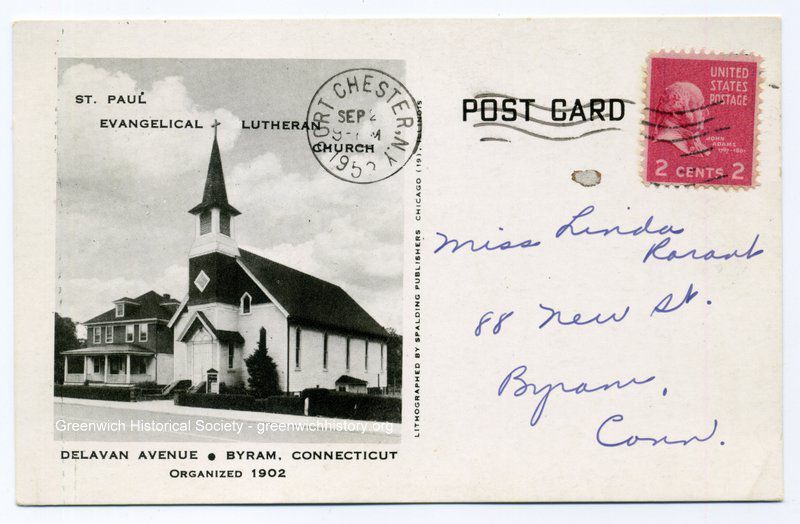 ST. PAUL
EVANGELICAL LUTHERAN
CHURCH
PORT CHESTER, N.Y.
SEP 2
1952
POST CARD
UNITED
STATES
POSTAGE
JOHN
ADAMS
1797-1801
2 CENTS 2
Miss Linda
88 New St.
Byram,
Conn.
LITHOGRAPHED BY SPALDING PUBLISHERS CHICAGO (19), ILLINOIS
Greenwich Historical Society - greenwichhistory.org
DELAVAN AVENUE ● BYRAM, CONNECTICUT
ORGANIZED 1902